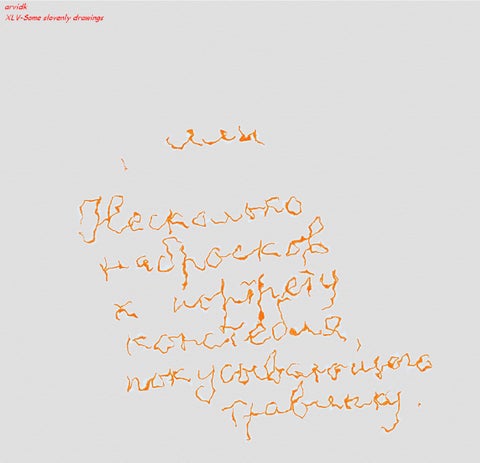 arvidk
XLV-Some slovenly drawings
или
Несколько
набросков
к портрету
констебля,
покусывающего
травинку.